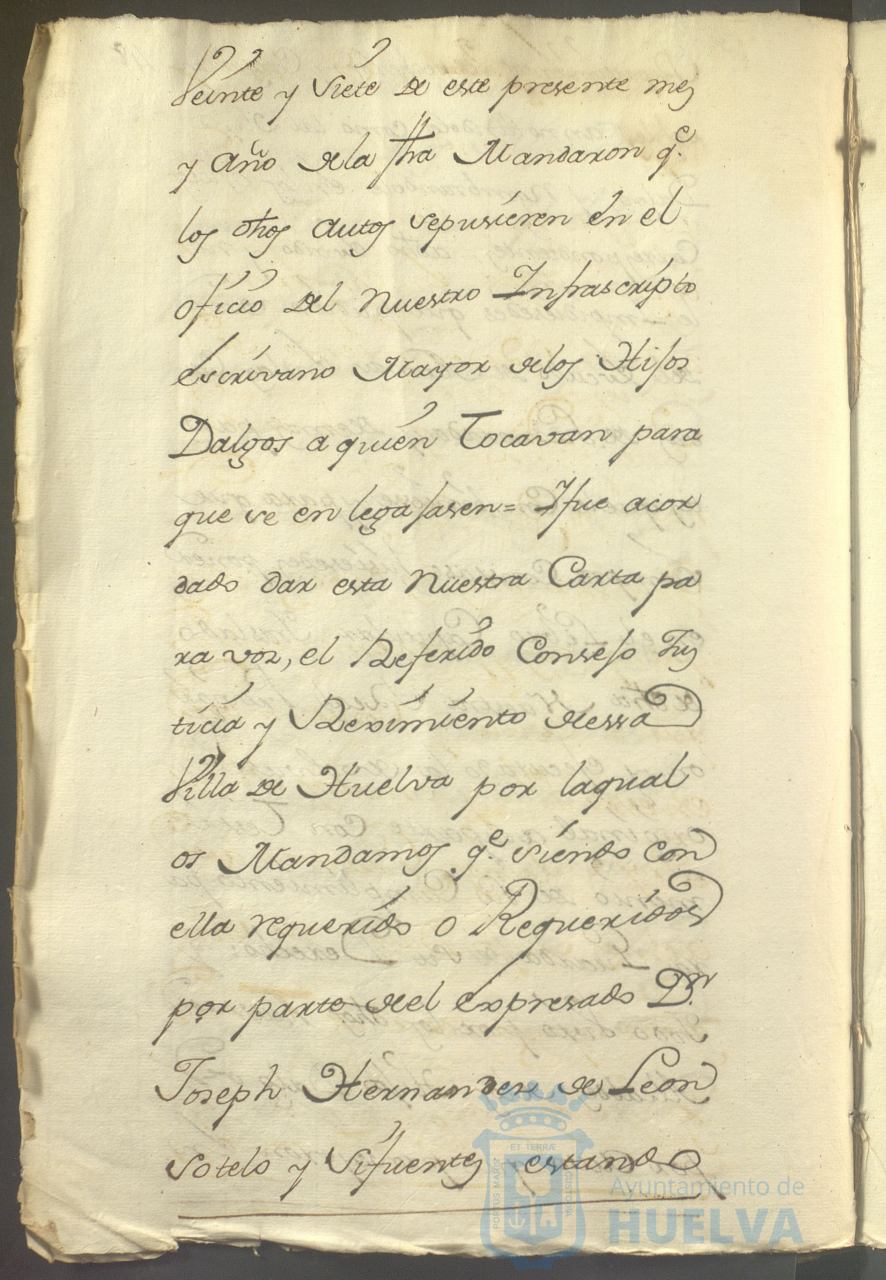 Veinte y Siete de este presente mes
y año dela fha Mandaron q.e
los dhos autos sepusieren en el
oficio del Nuestro Infrascripto
escrivano Mayor delos Hijos
Dalgos a quien Tocavan para
que se en legajasen= Y fue acor
dado dar esta Nuestra Carta pa
ra vos, el Referido Consejo Jus
ticia y Reximiento dessa
Villa de Huelva por laqual
os Mandamos q.e siendo con
ella requerido o Requeridos
por parte del expresado D.n
Joseph Hernandez de Leon
Sotelo y Sifuentes estando
Ayuntamiento de
HUELVA